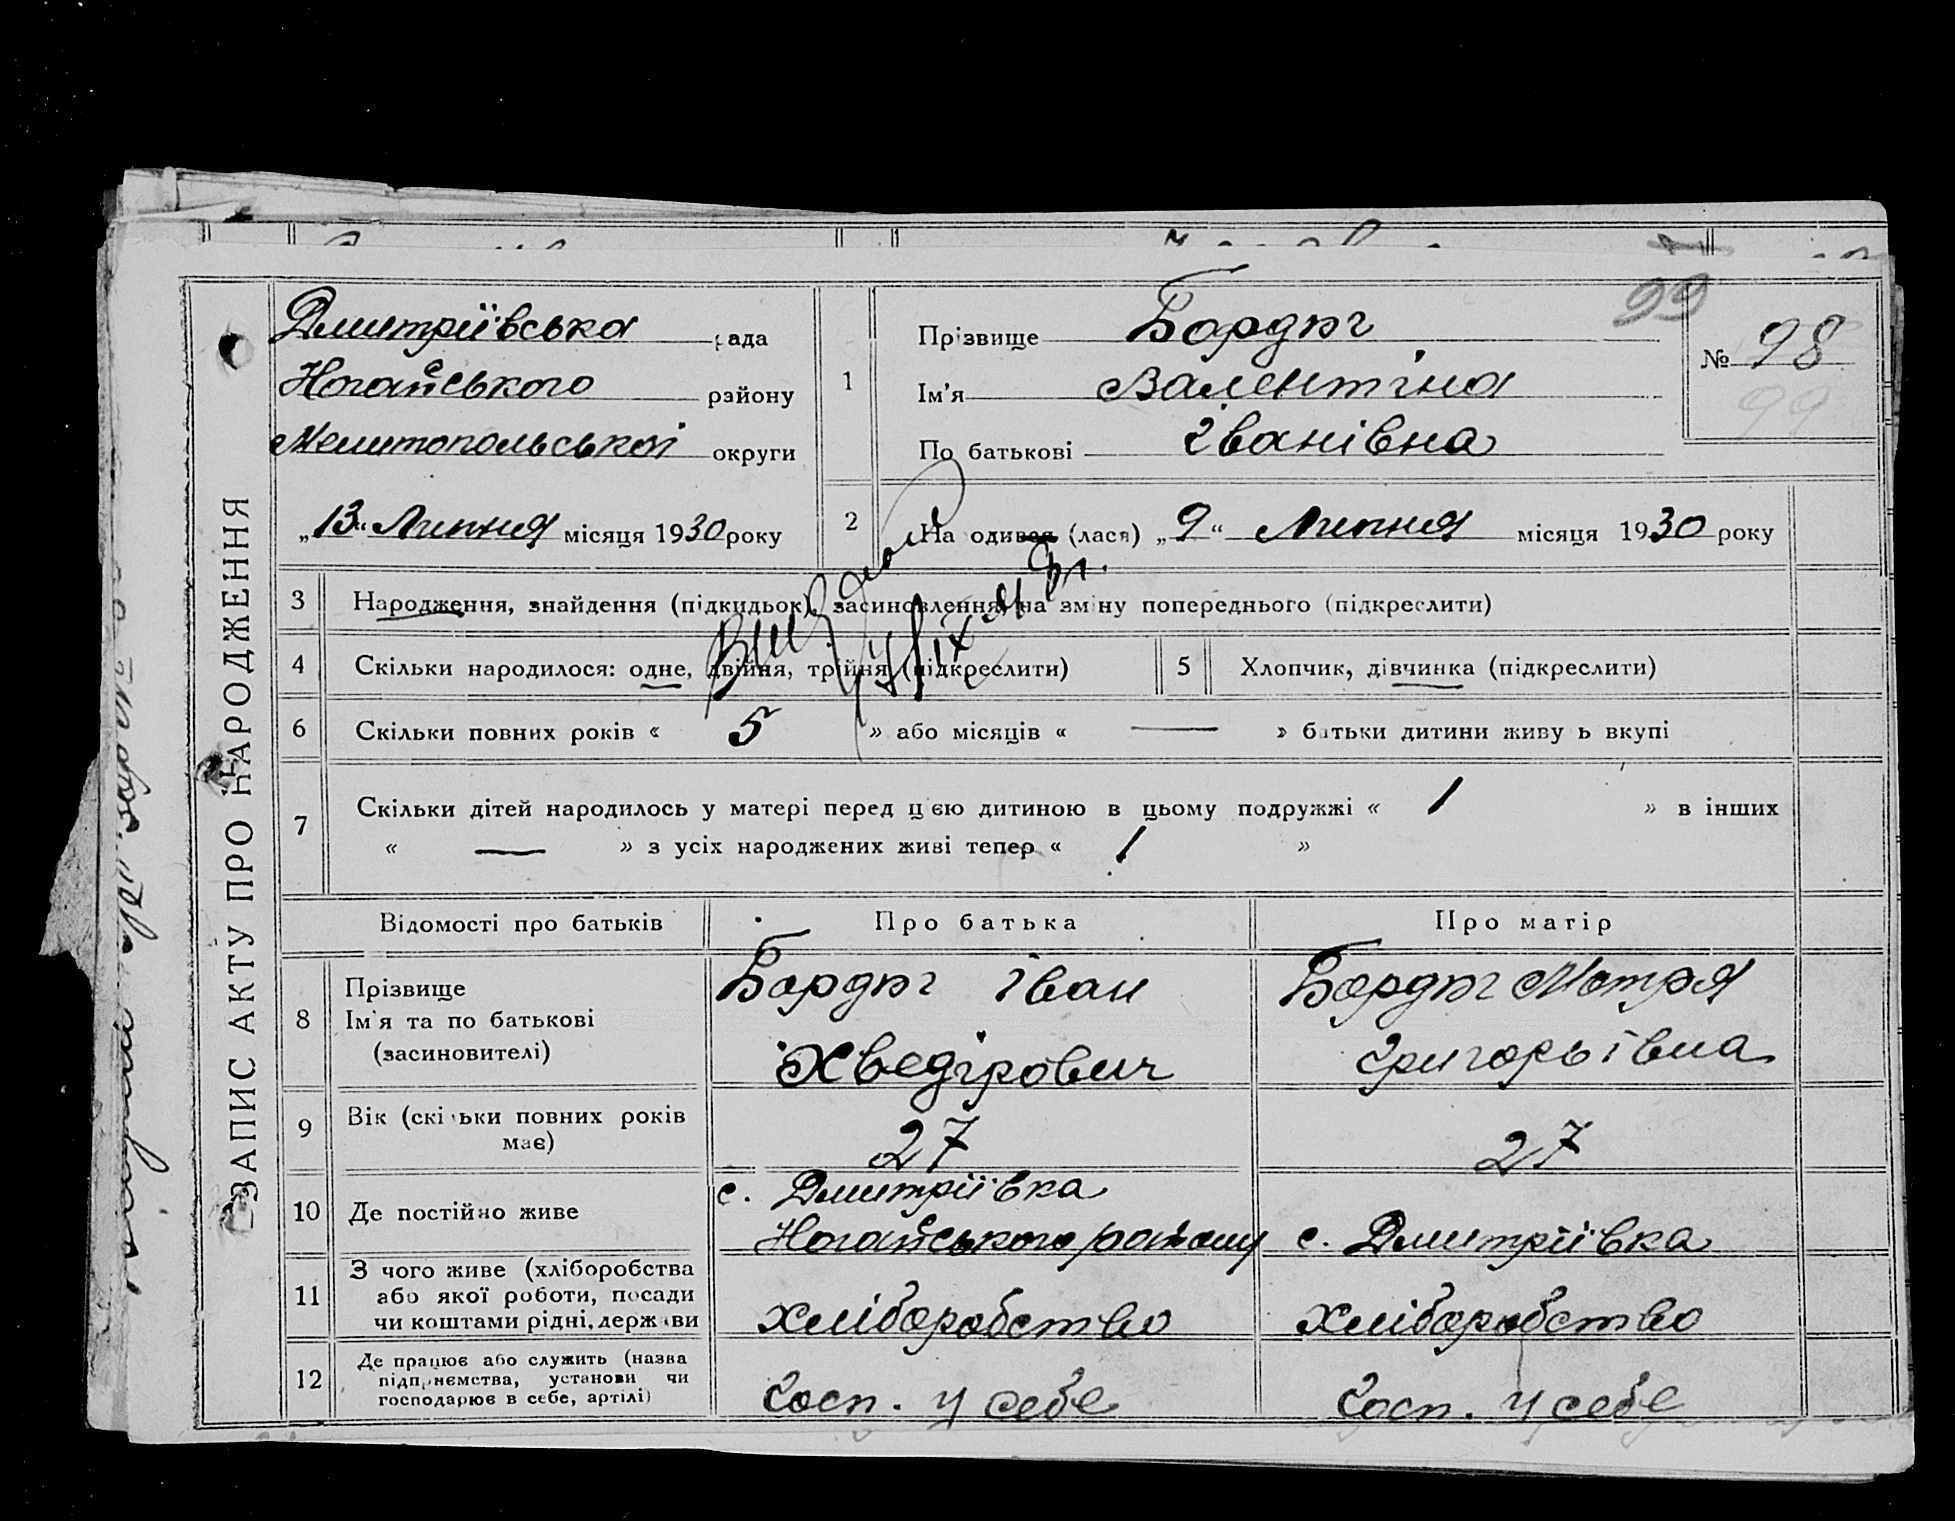 ЗАПИС АКТУ ПРО НАРОДЖЕННЯ
Дмитріївська рада
Ногайського району
Мелитопольської округи
„13“ Липня місяця 1930 року
99
№ 98
99
1 Прізвище Бордюг
Ім'я Валентіна
По батькові Іванівна
2 На одився (лася) „9“ Липня місяця 1930 року
3 Народження, знайдення (підкидьок), засиновлення, на зміну попереднього (підкреслити)
4 Скільки народилося: одне, двійня, трійня (підкреслити) 5 Хлопчик, дівчинка (підкреслити)
6 Скільки повних років « 5 » або місяців « — » батьки дитини живу ь вкупі
7 Скільки дітей народилось у матері перед цією дитиною в цьому подружжі « 1 » в інших
« — » з усіх народжених живі тепер « 1 »
Відомості про батьків Про батька Про матір
8 Прізвище Ім'я та по батькові (засиновителі)
Бордюг Іван
Хведірович
Бордюг Мотря
Григорьівна
9 Вік (скільки повних років має) 27 27
10 Де постійно живе
с. Дмитріївка
Ногайського району
с. Дмитріївка
11 З чого живе (хліборобства
або якої роботи, посади
чи коштами рідні, держави
Хліборобство Хліборобство
12 Де працює або служить (назва
підприємства, установи чи
господарює в себе, артілі)
Госп. у себе Госп. у себе